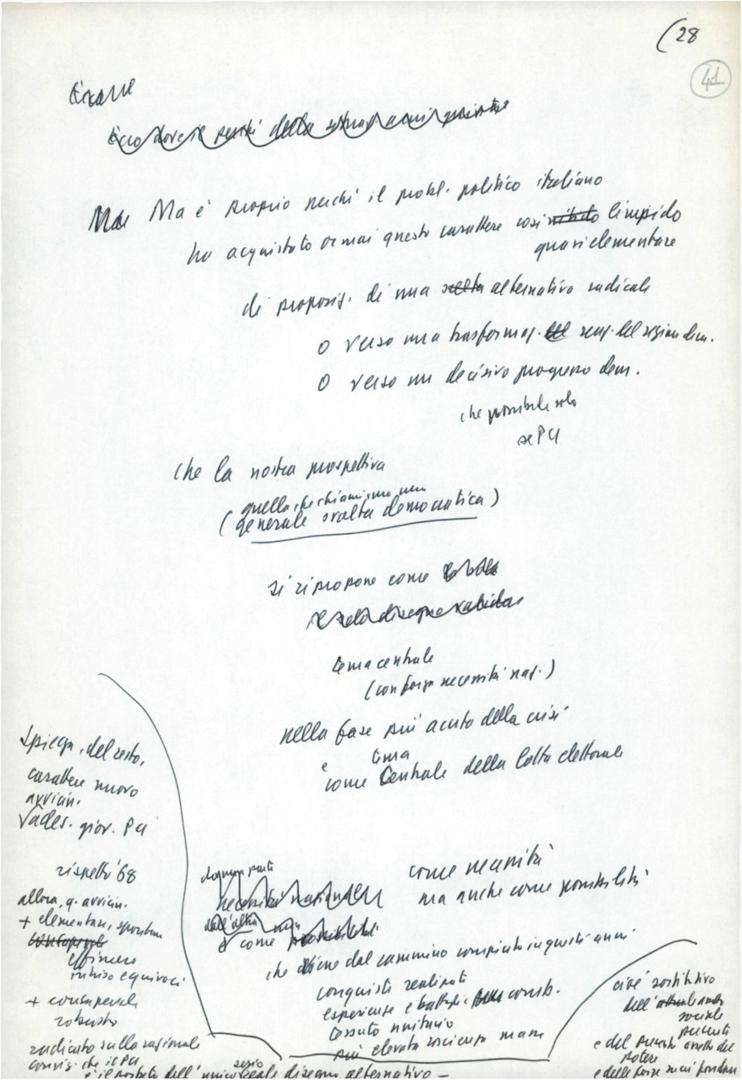 (28
41
Ma è proprio perché il probl. politico italiano
ha acquistato ormai questo carattere così limpido
quasi elementare
di proposiz. di una alternativa radicale
o verso una trasformaz. reaz. del regime dem.
o verso un decisivo progresso dem.
che possibile solo
se PCI
che la nostra prospettiva
(quella che chiamiamo una
generale svolta democratica)
si ripropone come
tema centrale
(con forza necessità naz.)
nella fase più acuta della crisi
e come tema centrale della lotta elettorale
come necessità
ma anche come possibilità
e come
che viene dal cammino compiuto in questi anni
conquiste realizzate
esperienze e battaglie comb.
tessuto unitario
più elevata coscienza masse
Spiega, del resto,
carattere nuovo
avvicin.
ades. giov. PCI
rispetto '68
allora, q. avvicin.
+ elementare, spontan.
effimero
intriso equivoci
+ consapevole
robusto
radicato sulla razionale
convinz. che il PCI
è il portato dell'unico reale serio disegno alternativo –
cioè sostitutivo
dell'
sociale
e del
potere